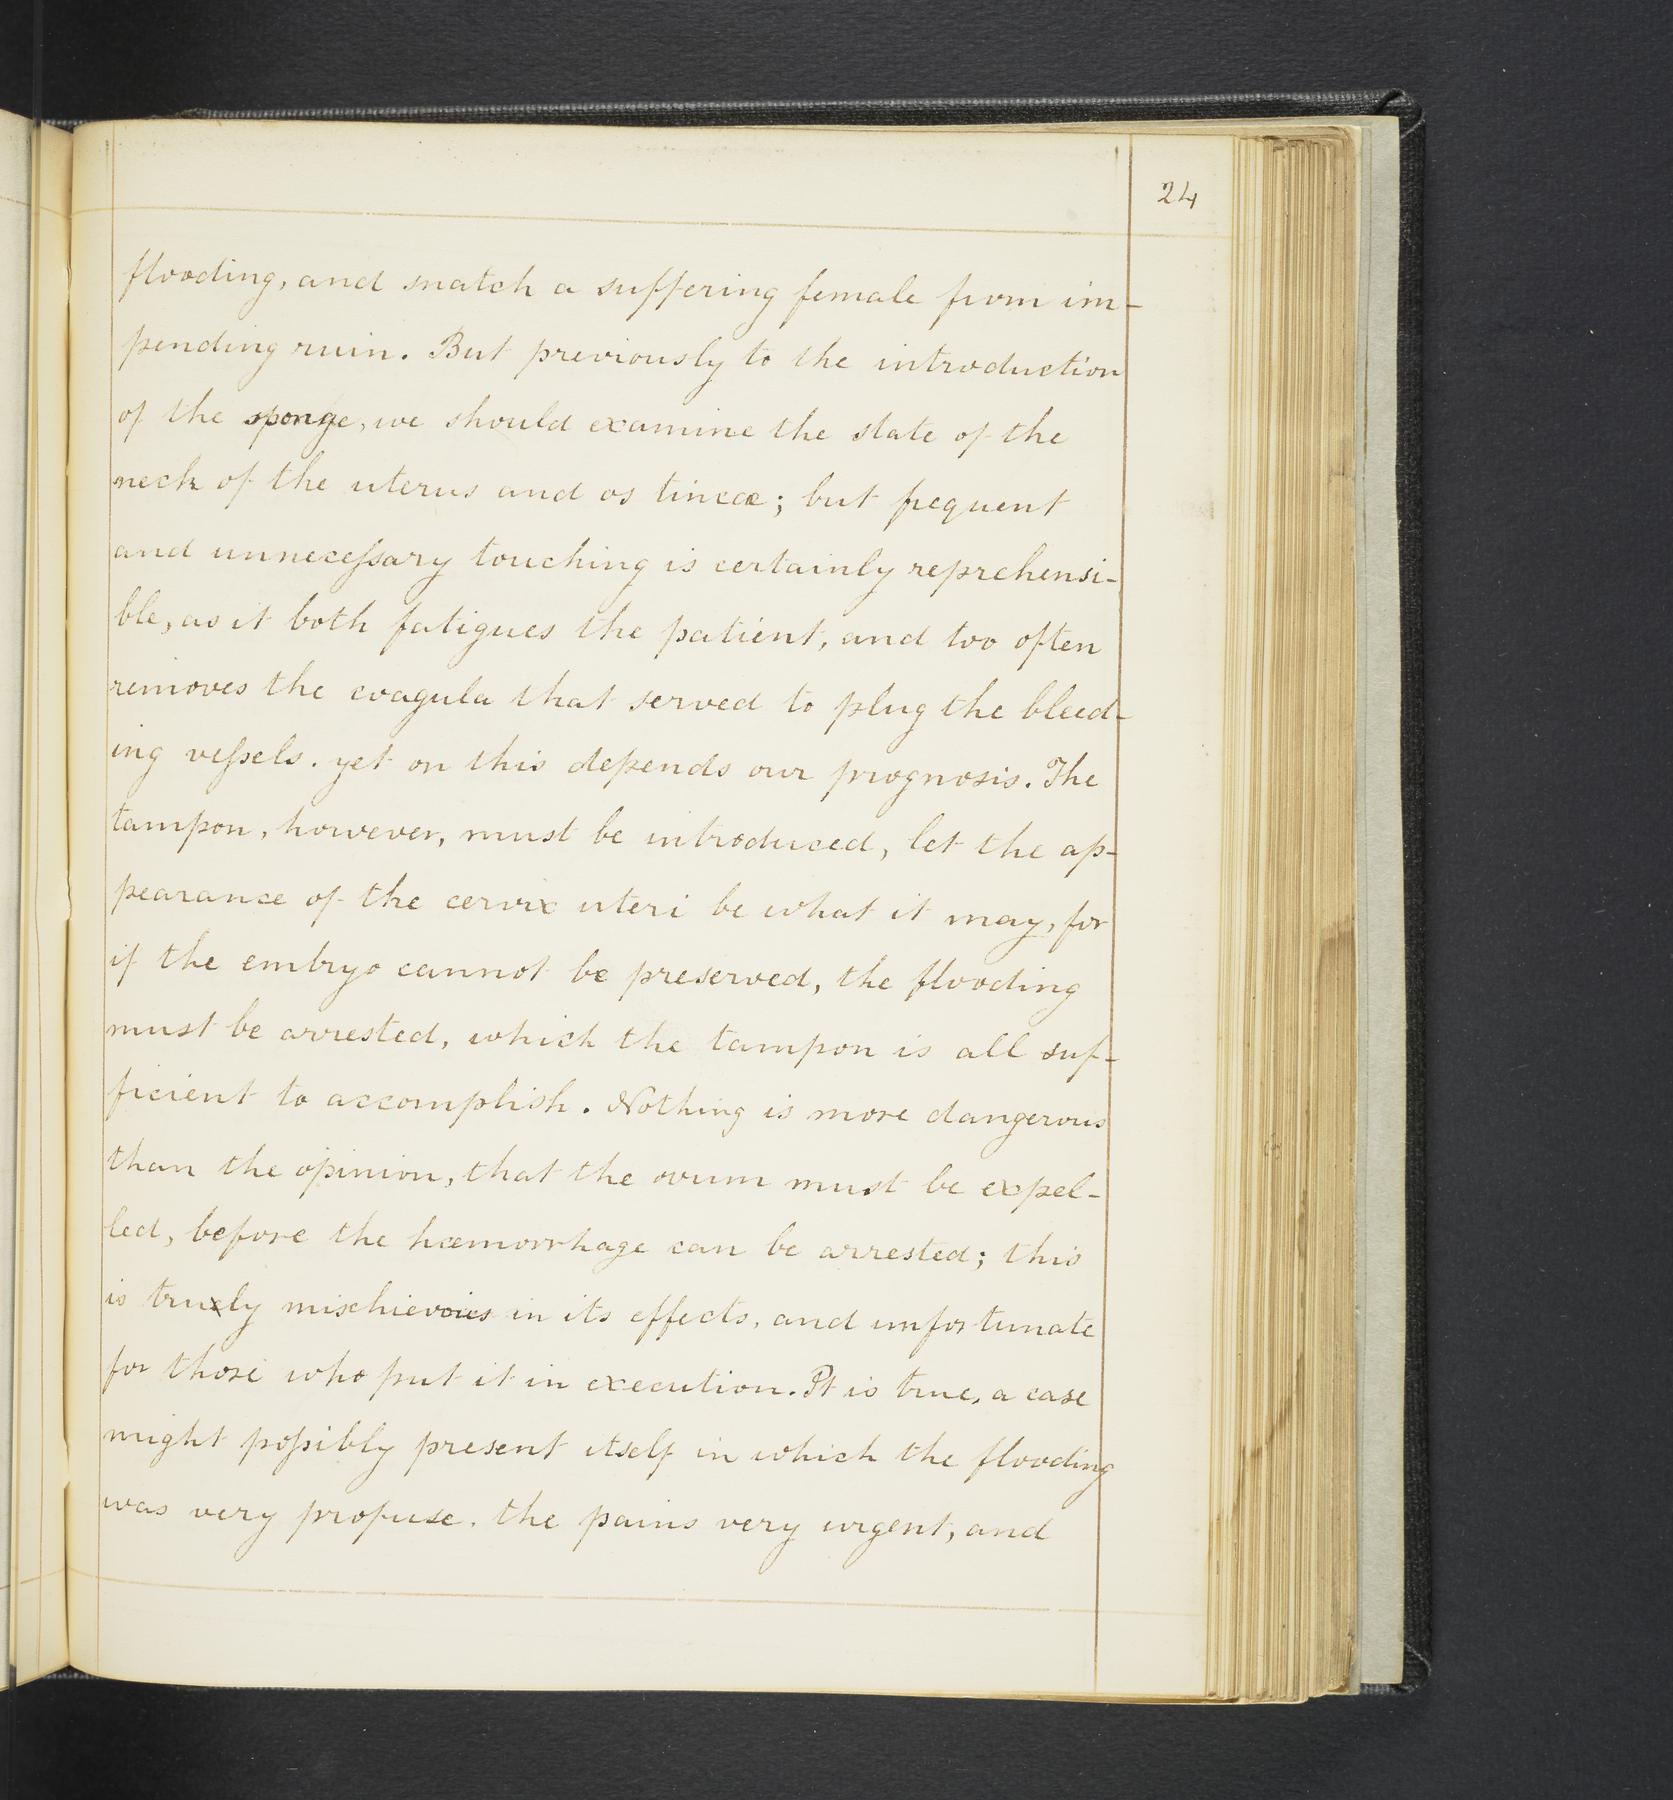 24
flooding, and snatch a suffering female from im-
pending ruin. But previously to the introduction
of the sponge, we should examine the state of the
neck of the uterus and os tincæ; but frequent
and unnecessary touching is certainly reprehensi-
ble, as it both fatigues the patient, and too often
removes the coagula that served to plug the bleed-
ing vessels. yet on this depends our prognosis. The
tampon, however, must be introduced, let the ap-
pearance of the cervix uteri be what it may, for
if the embryo cannot be preserved, the flooding
must be arrested, which the tampon is all suf-
ficient to accomplish. Nothing is more dangerous
than the opinion, that the ovum must be expel-
led, before the hæmorrhage can be arrested; this
is truely mischievous in its effects, and unfortunate
for those who put it in execution. It is true, a case
might possibly present itself in which the flooding
was very profuse, the pains very urgent, and